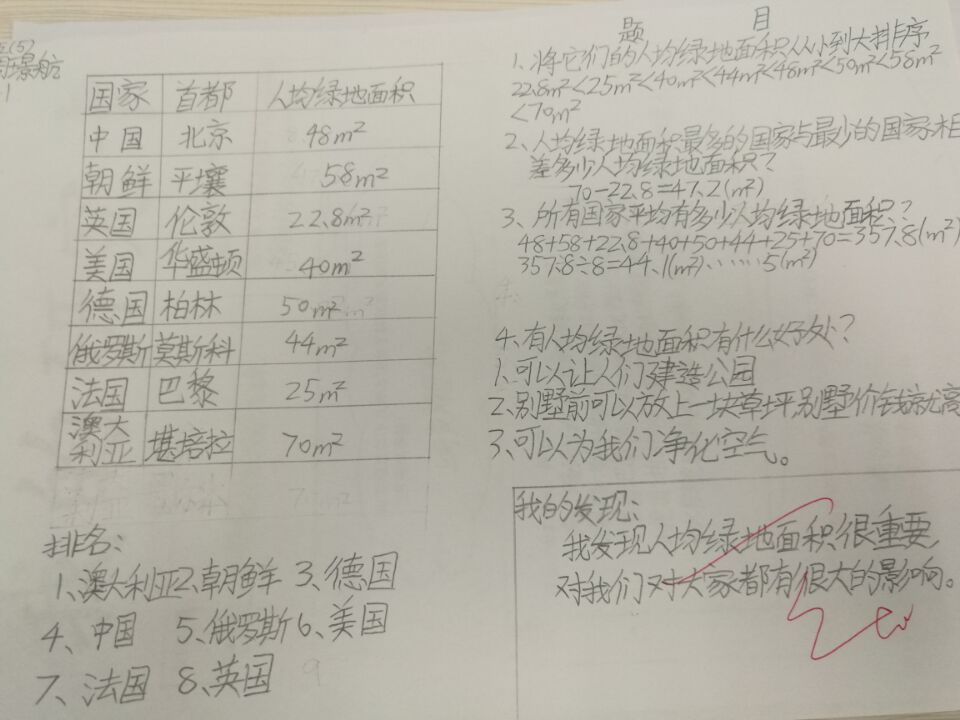 国家 首都 人均绿地面积
中国 北京 48m²
朝鲜 平壤 58m²
英国 伦敦 22.8m²
美国 华盛顿 40m²
德国 柏林 50m²
俄罗斯 莫斯科 44m²
法国 巴黎 25m²
澳大利亚 堪培拉 70m²
排名:
1、澳大利亚 2、朝鲜 3、德国
4、中国 5、俄罗斯 6、美国
7、法国 8、英国
题 目
1、将它们的人均绿地面积从小到大排序
22.8m²<25m²<40m²<44m²<48m²<50m²<58m²
<70m²
2、人均绿地面积最多的国家与最少的国家相
差多少人均绿地面积?
70-22.8=47.2(m²)
3、所有国家平均有多少人均绿地面积?
48+58+22.8+40+50+44+25+70=357.8(m²)
357.8÷8=44.1(m²)……5(m²)
4、有人均绿地面积有什么好处?
1、可以让人们建造公园
2、别墅前可以放上一块草坪,别墅价钱就高
3、可以为我们净化空气。
我的发现:
我发现人均绿地面积很重要,
对我们对大家都有很大的影响。